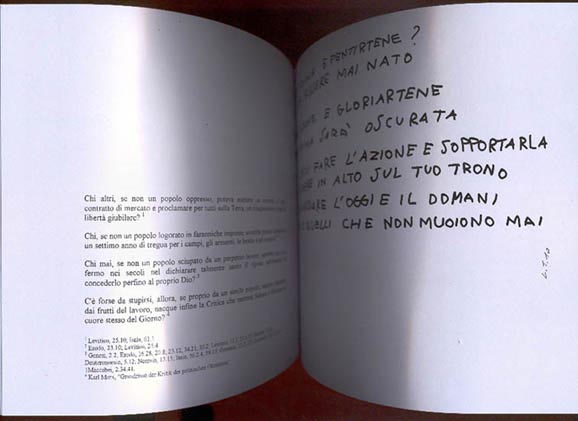 Chi altri, se non un popolo oppresso, poteva
contratto di mercato e proclamare per tutti sulla Terra, un
libertà giubilare? 1
Chi, se non un popolo logorato in faraoniche imprese,
un settimo anno di tregua per i campi, gli armenti, le bestie
Chi mai, se non un popolo sciupato da un perpetuo lavoro,
fermo nei secoli nel dichiarare talmente santo il riposo
concederlo perfino al proprio Dio? 3
C'è forse da stupirsi, allora, se proprio da un simile popolo,
dai frutti del lavoro, nacque infine la Critica che
cuore stesso del Giorno? 4
1 Levitico, 25.10; Isaia, 61.1
2 Esodo, 23.10; Levitico, 25.4
3 Genesi, 2.2; Esodo, 16.28, 20.8, 23.12, 34.21, 35.2; Levitico,
Deuteronomio, 5.12; Neemia, 13.15; Isaia, 56.2.4, 58.13;
1Maccabei, 2.34.41.
4 Karl Marx, "Grundrisse der Kritik der politischen Ökonomie"
E PENTIRTENE ?
MAI NATO
E GLORIARTENE
SARÀ OSCURATA
FARE L'AZIONE E SOPPORTARLA
IN ALTO SUL TUO TRONO
L'OGGI E IL DOMANI,
CHE NON MUOIONO MAI